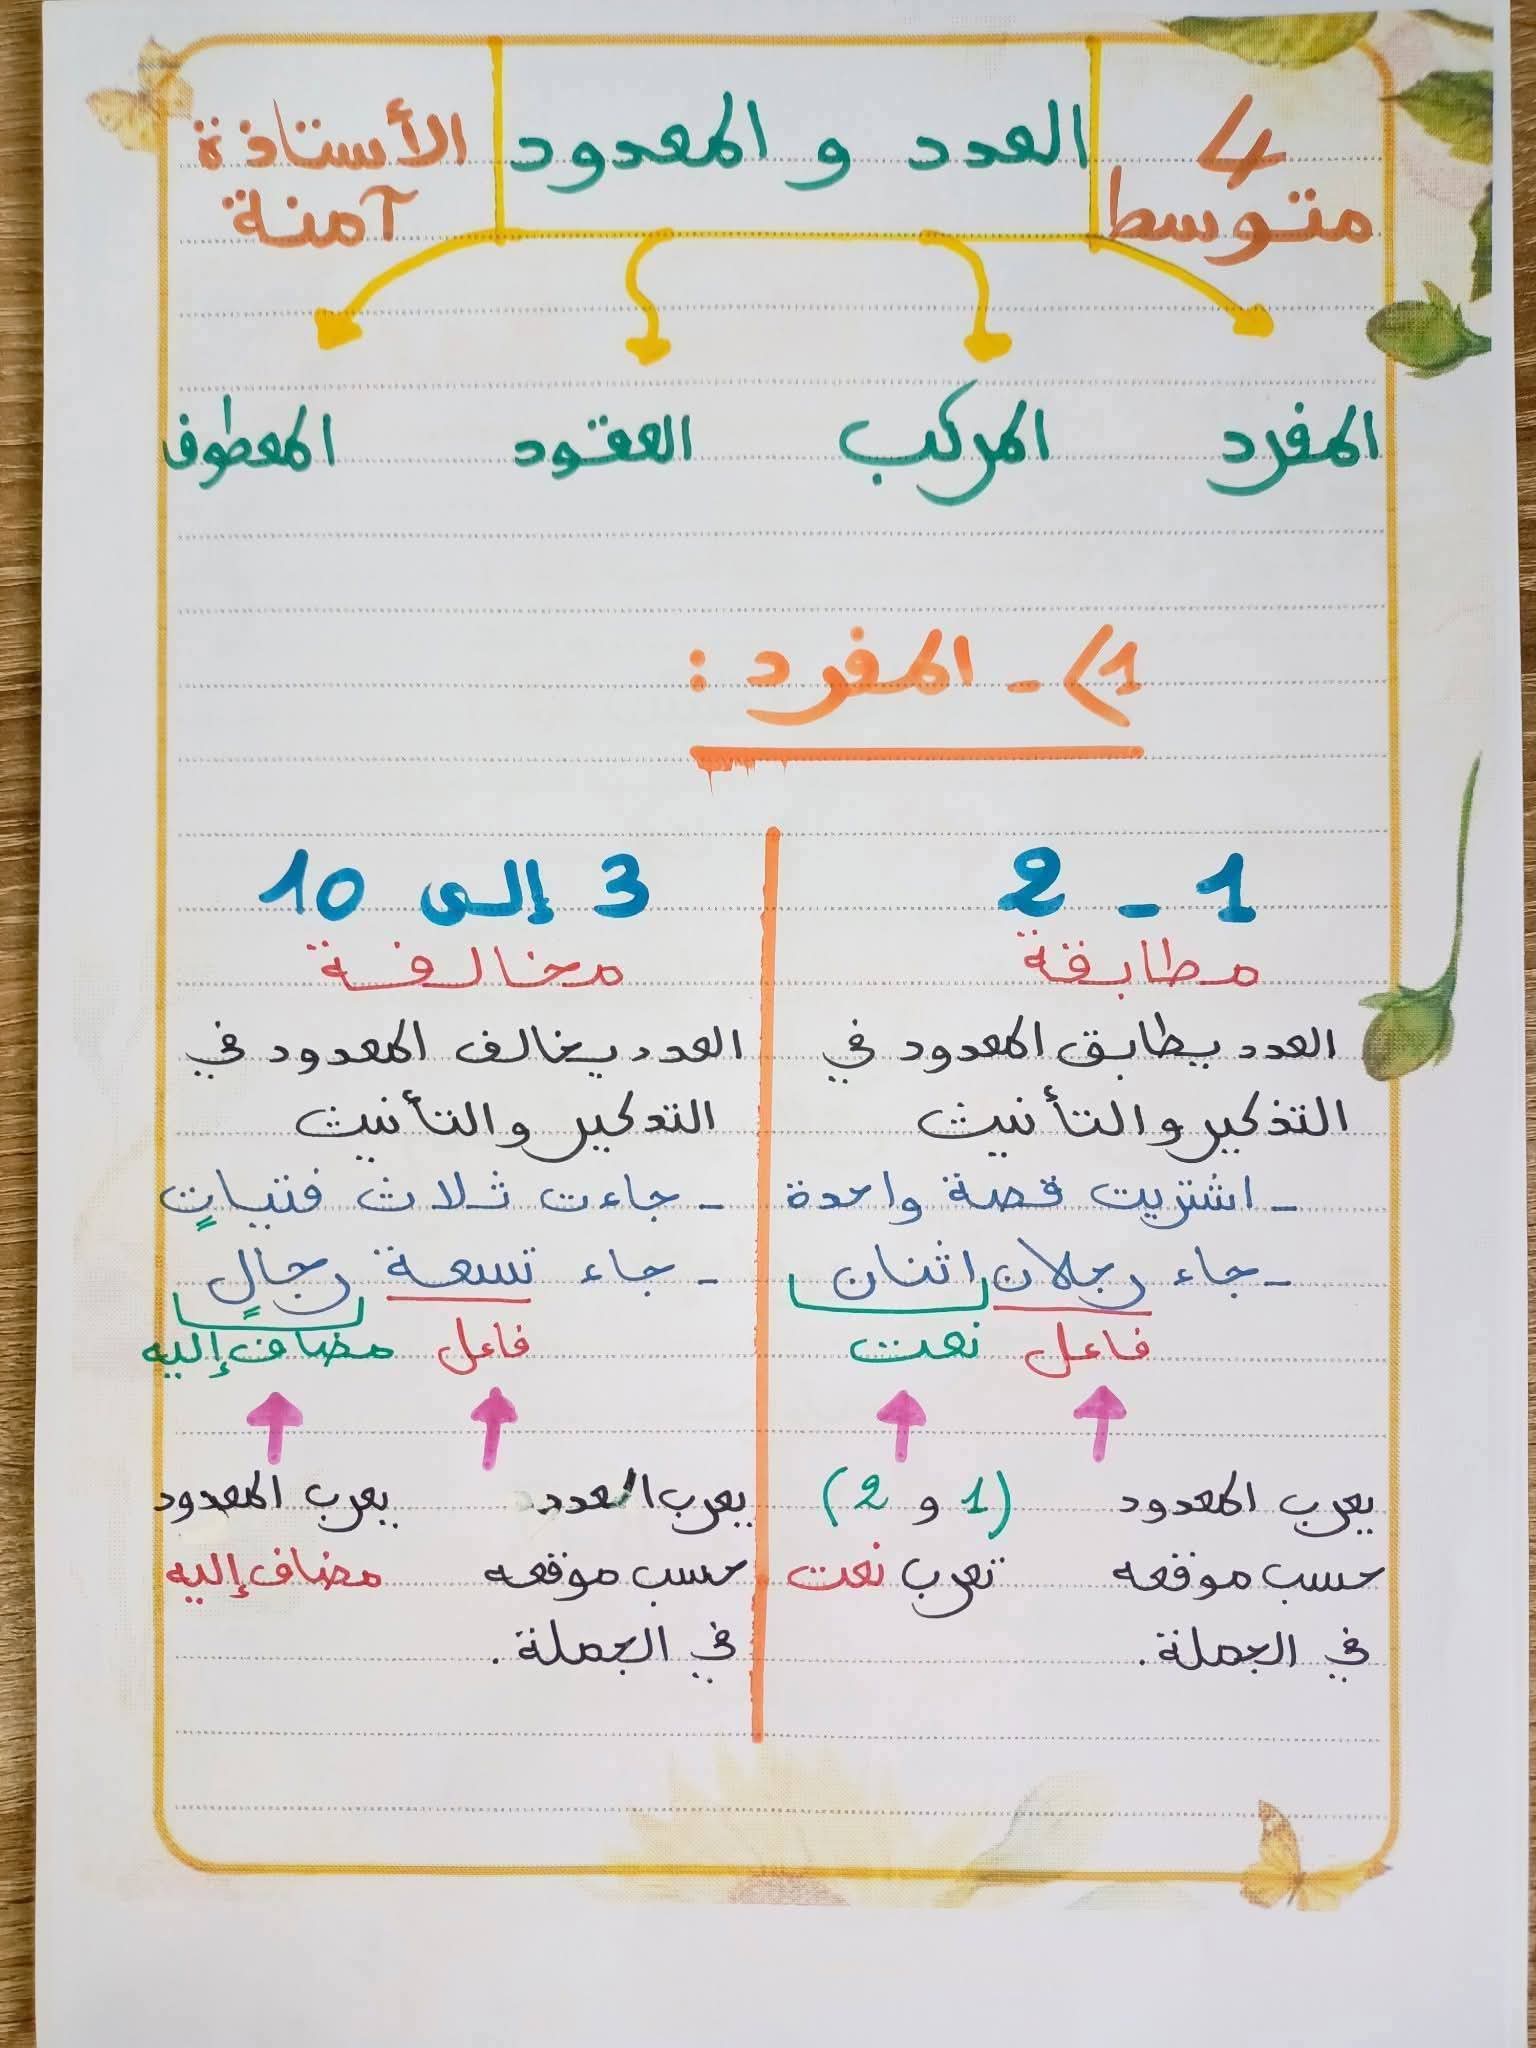 4 متوسط
العدد و المعدود
الأستاذة آمنة
المفرد
المركب
العقود
المعطوف
1) - المفرد :
1 - 2
مطابقة
العدد يطابق المعدود في
التذكير والتأنيث
- اشتريت قصة واحدة
- جاء رجلان اثنان
فاعل نعت
يعرب المعدود
حسب موقعه
في الجملة.
(1 و 2)
تعرب نعت
3 إلى 10
مخالفة
العدد يخالف المعدود في
التدكير والتأنيث
- جاءت ثلاث فتياتٍ
- جاء تسعة رجالٍ
فاعل مضاف إليه
يعرب العدد
حسب موقعه
في الجملة.
يعرب المعدود
مضاف إليه